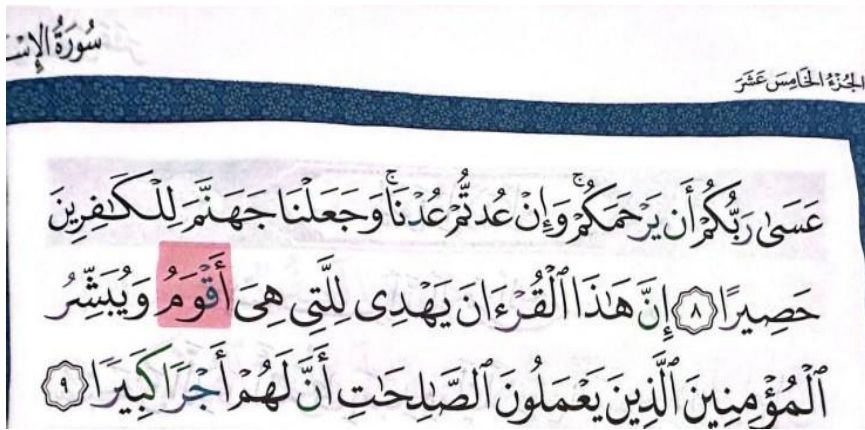 سُورَةُ الإِسْـ
الجُزْءُ الخَامِسَ عَشَرَ
عَسَىٰ رَبُّكُمْ أَن يَرْحَمَكُمْ ۚ وَإِنْ عُدتُّمْ عُدْنَا ۚ وَجَعَلْنَا جَهَنَّمَ لِلْكَـٰفِرِينَ
حَصِيرًا ٨ إِنَّ هَـٰذَا ٱلْقُرْءَانَ يَهْدِى لِلَّتِى هِىَ أَقْوَمُ وَيُبَشِّرُ
ٱلْمُؤْمِنِينَ ٱلَّذِينَ يَعْمَلُونَ ٱلصَّـٰلِحَـٰتِ أَنَّ لَهُمْ أَجْرًا كَبِيرًا ٩